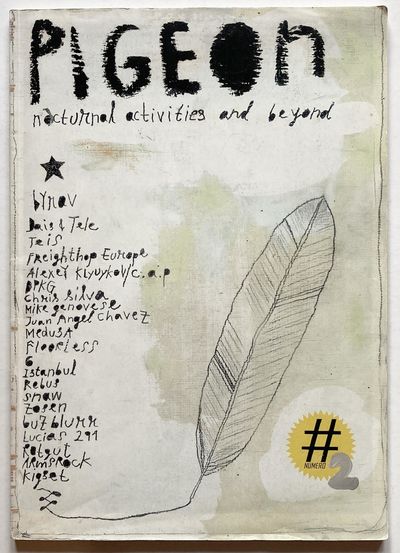 PIGEON
nocturnal activities and beyond
bYnav
Dais & Tele
Teis
Freighthop Europe
Alexey Klyuykov/c.a.p
BPKG
Chris Silva
Mike genovese
Juan Angel Chavez
MedusA
Floorless
6
Istanbul
Rebus
snaw
Zosen
buz blurr
Lucias 291
Ratgut
ARMSROCK
Kioset
#
NUMERO
2